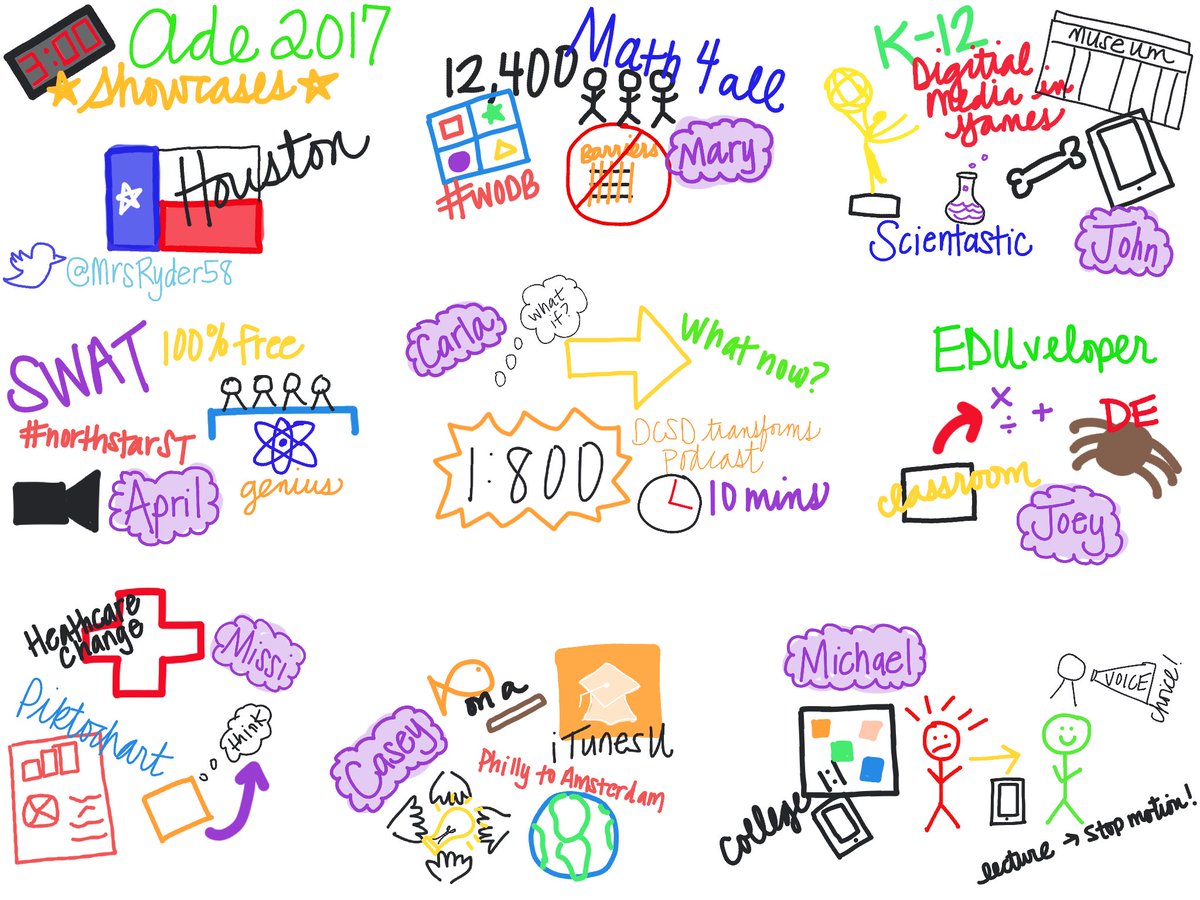 3:00
Ade 2017
Showcases
Houston
@MrsRyder58
12,400
Math 4 all
#WODB
Barriers
Mary
K-12
Digitial
Media in
Games
Museum
Scientastic
John
SWAT
100% free
#northstarST
genius
April
Carla
What
if?
What now?
1:800
DCSD transforms
Podcast
10 mins
EDUveloper
× ÷ +
DE
classroom
Joey
Heathcare
Change
Missi
Piktochart
think
on a
iTunesU
Casey
Philly to Amsterdam
Michael
college 1:1
VOICE
choice!
lecture → Stop motion!